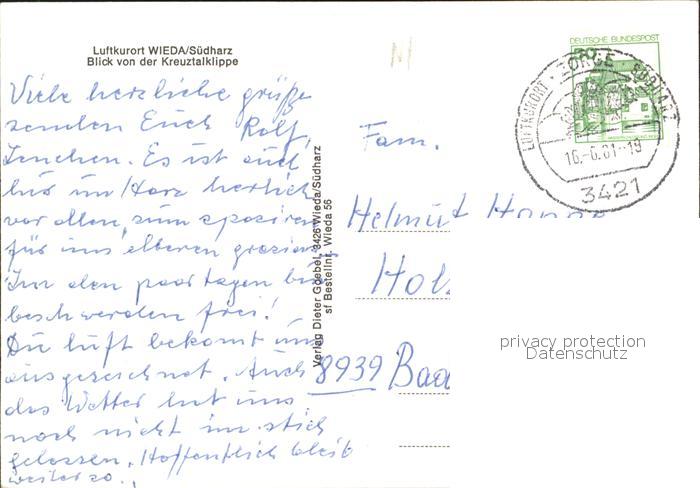 Luftkurort WIEDA/Südharz
Blick von der Kreuztalklippe
Viele herzliche grüße
senden Euch Rolf,
Lenchen. Es ist auch
hir im Harz herrlich
vor allen, zum spaziren
für uns elteren
In den paar tagen bin
beschwerden frei!
Die luft bekomt uns
ausgezeichnet. Auch
das Wetter hat uns
noch nicht im stich
gelassen. Hoffentlich bleib
weiter so.
Verlag Dieter Goebel, 3426 Wieda/Südharz
sf Bestellnr. Wieda 56
DEUTSCHE BUNDESPOST
50
LUFTKURORT · ZORGE · SÜDHARZ
16.-6.81-19
3421
Fam.
Helmut
Hol
8939 Baa
privacy protection
Datenschutz